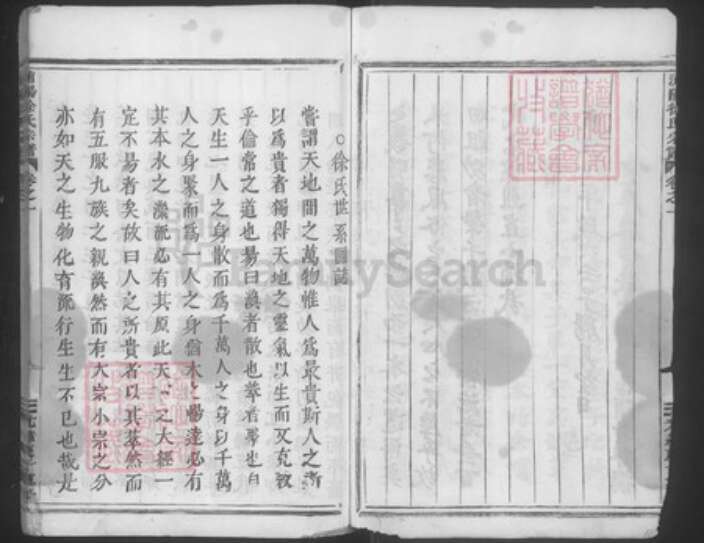 ○徐氏世系圖誌
嘗謂天地間之萬物惟人爲最貴斯人之所
以爲貴者獨得天地之靈氣以生而又克敦
乎倫常之道也易曰渙者散也萃者聚也自
天生一人之身散而爲千萬人之身以千萬
人之身聚而爲一人之身猶木之暢達必有
其本水之瀠派必有其原此天下之大經一
定不易者矣故曰人之所貴者以其萃然而
有五服九族之親渙然而有大宗小宗之分
亦如天之生物化育流行生生不已也哉是
徐氏宗譜 卷之一
譜學會
FamilySearch